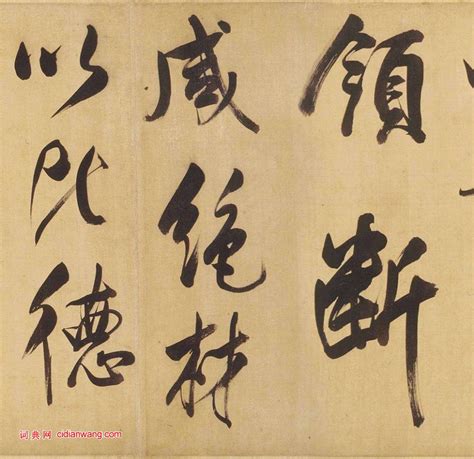 領斷
咸絶材
以德
词典网 cidianwang.com